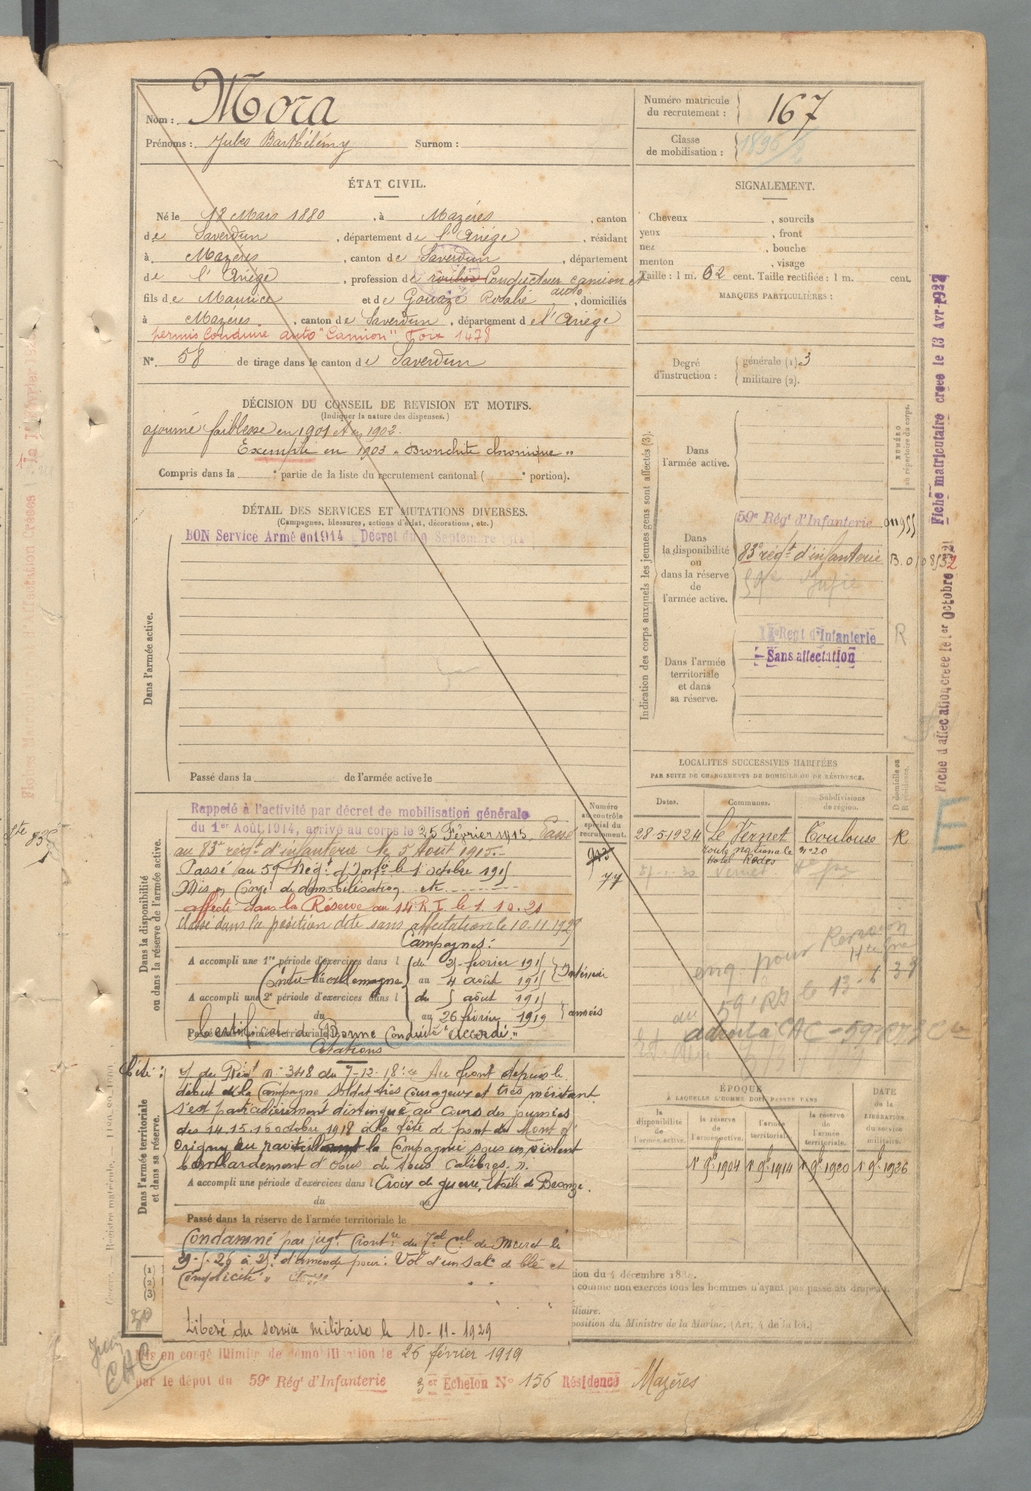 Nom : Mora
Prénoms : Jules Barthélémy Surnom :
Numéro matricule du recrutement : 167
Classe de mobilisation : 1896
ÉTAT CIVIL.
Né le 12 Mars 1880, à Mazères, canton
de Saverdun, département de l'Ariége, résidant
à Mazères, canton de Saverdun, département
de l'Ariége, profession de Conducteur camion et auto
fils de Maurice et de Gouazé Rosalie, domiciliés
à Mazères, canton de Saverdun, département de l'Ariége
permis Conduire auto "Camion" Foix 1478
N° 58 de tirage dans le canton de Saverdun
SIGNALEMENT.
Cheveux , sourcils
yeux , front
nez , bouche
menton , visage
Taille : 1 m. 62 cent. Taille rectifiée : 1 m. cent.
MARQUES PARTICULIÈRES :
Degré d'instruction : générale (1) 3
militaire (2).
DÉCISION DU CONSEIL DE REVISION ET MOTIFS.
(Indiquer la nature des dispenses.)
ajourné faiblesse en 1901 et en 1902.
Exempté en 1903 « Bronchite chronique »
Compris dans la e partie de la liste du recrutement cantonal ( e portion).
DÉTAIL DES SERVICES ET MUTATIONS DIVERSES.
(Campagnes, blessures, actions d'éclat, décorations, etc.)
BON Service Armé en 1914 Décret du 9 Septembre
Dans l'armée active.
Passé dans la de l'armée active le
Indication des corps auxquels les jeunes gens sont affectés (3).
NUMÉRO au répertoire du corps.
Dans l'armée active.
Dans la disponibilité ou dans la réserve de l'armée active.
59e Rég d'Infanterie
83e régt d'infanterie
Dans l'armée territoriale et dans sa réserve.
Regt d'Infanterie R
Sans affectation
Fiche matriculaire créée le 13 Avr. 1932
Fiche d'affectation créée le 1er Octobre
LOCALITÉS SUCCESSIVES HABITÉES
PAR SUITE DE CHANGEMENTS DE DOMICILE OU DE RÉSIDENCE.
Dates. Communes. Subdivisions de région. D domicile ou R résidence.
28-5-1924 Le Vernet Toulouse R
route nationale n° 20
Hotel Rodes
Dans la disponibilité ou dans la réserve de l'armée active.
Numéro au contrôle spécial du recrutement.
77
Rappelé à l'activité par décret de mobilisation générale
du 1er Août 1914, arrivé au corps le 25 Février 1915 Passé
au 83e régt d'infanterie le 5 Août 1915.
Passé au 59e Régt d'Infie le 1 octobre 1915
Mis en Congé de démobilisation etc
affecté dans la Réserve au 14 R I. le 1. 10. 21
Classé dans la position dite sans affectation le 10.11.1927
Campagnes :
A accompli une 1re période d'exercices dans l
Contre l'Allemagne
du 25 février 1915 au 4 août 1915 Intérieur
A accompli une 2e période d'exercices dans l
du 5 août 1915 au 26 février 1919 armées
Certificat de Bonne Conduite "Accordé"
Citations
Cité : O du Régt n° 348 du 7-12-18 : « Au front depuis le
début de la Campagne soldat très courageux et très méritant
s'est particulièrement distingué au cours des journées
des 14.15.16 octobre 1918 à la tête de pont du Mont d'
Origny en ravitaillant la Compagnie sous un violent
bombardement d'obus de tous calibres. »
Dans l'armée territoriale et dans sa réserve.
A accompli une période d'exercices dans l
Croix de guerre, étoile de Bronze.
du au
Passé dans la réserve de l'armée territoriale le
Condamné par jugt
de Muret le
à 25f d'amende pour : Vol d'un sac de blé et
Complicité
Libéré du service militaire le 10-11-1929
ÉPOQUE
À LAQUELLE L'HOMME DOIT PASSER DANS
la disponibilité de l'armée active.
la réserve de l'armée active.
l'armée territoriale.
la réserve de l'armée territoriale.
DATE de la LIBÉRATION du service militaire.
1er 9bre 1904 1er 9bre 1914 1er 9bre 1920 1er 9bre 1926
comme non exercés tous les hommes n'ayant pas passé au drapeau
position du Ministre de la Marine. (Art. 4 de la loi.)
Mis en congé illimité de démobilisation le 26 février 1919
par le dépôt du 59e Rég d'Infanterie 3er Échelon N° 156 Résidence Mazères